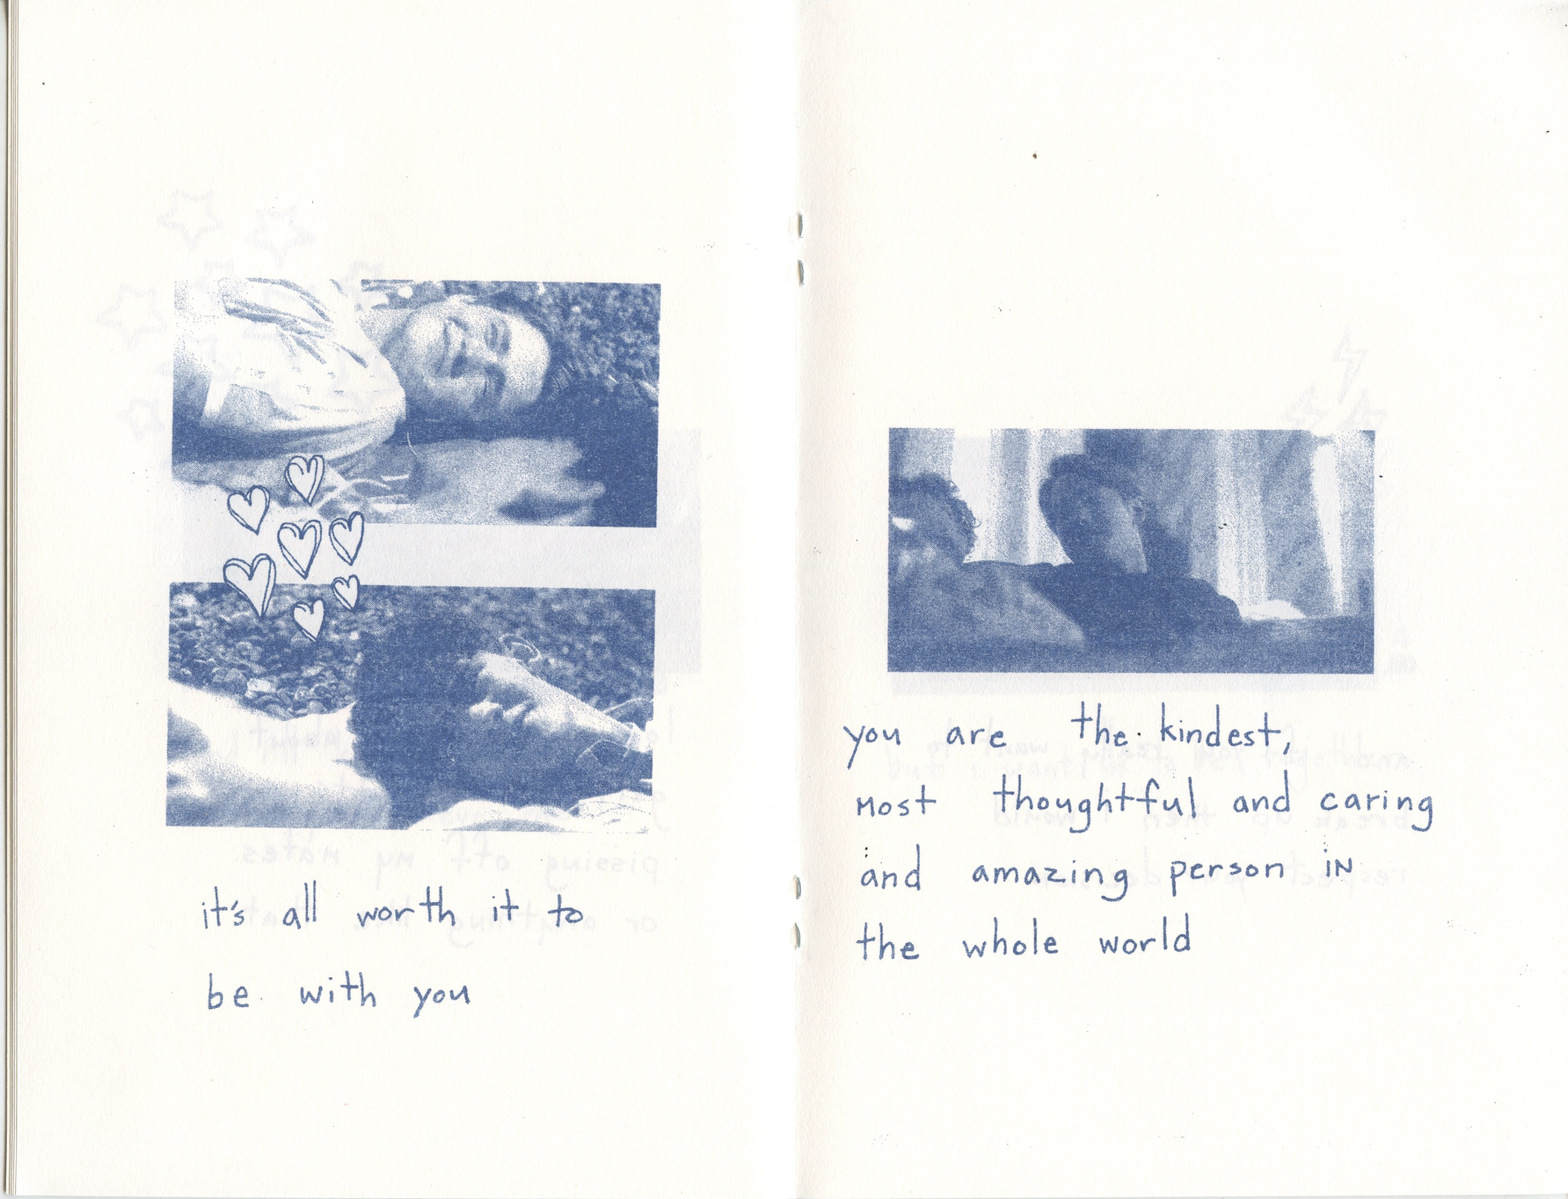 it's all worth it to
be with you
you are the kindest,
most thoughtful and caring
and amazing person in
the whole world